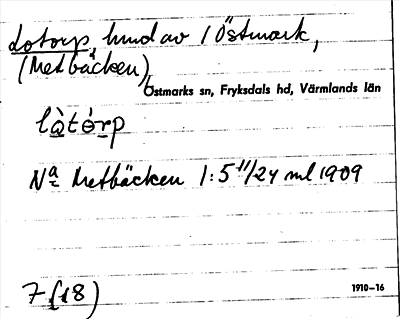 Lotorp, hmd av i Östmark,
(Metbäcken)
Östmarks sn, Fryksdals hd, Värmlands län
là̱tó̱rp
Nª Metbäcken 1:5 11/24 ml 1909
7 (18)
1910–16